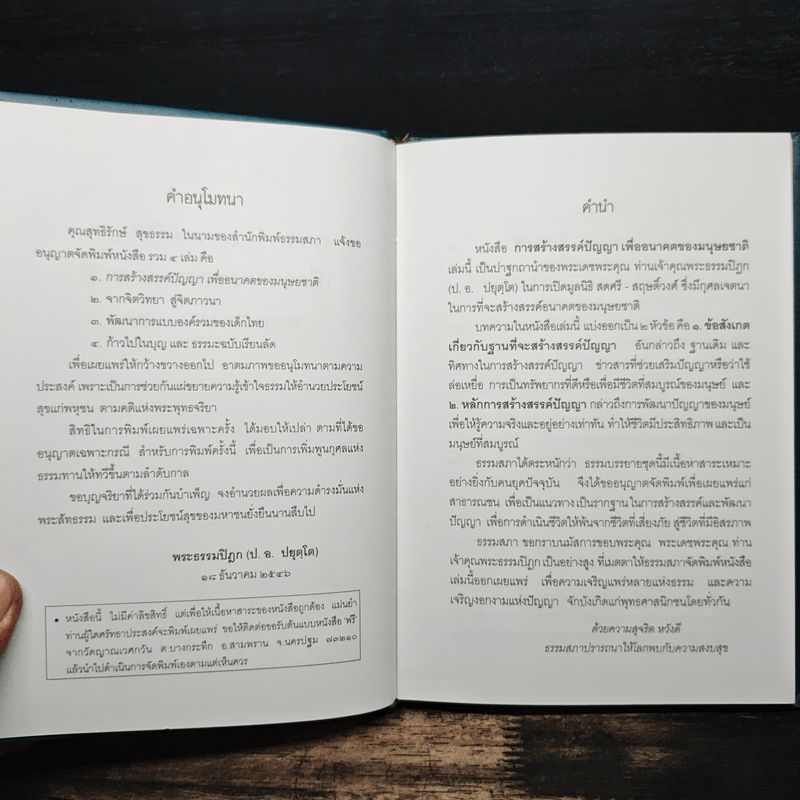 คำอนุโมทนา
คุณสุทธิรักษ์ สุขธรรม ในนามของสำนักพิมพ์ธรรมสภา แจ้งขอ
อนุญาตจัดพิมพ์หนังสือ รวม ๔ เล่ม คือ
๑. การสร้างสรรค์ปัญญา เพื่ออนาคตของมนุษยชาติ
๒. จากจิตวิทยา สู่จิตภาวนา
๓. พัฒนาการแบบองค์รวมของเด็กไทย
๔. ก้าวไปในบุญ และ ธรรมะฉบับเรียนลัด
เพื่อเผยแพร่ให้กว้างขวางออกไป อาตมภาพขออนุโมทนาตามความ
ประสงค์ เพราะเป็นการช่วยกันแผ่ขยายความรู้เข้าใจธรรมให้อำนวยประโยชน์
สุขแก่พหุชน ตามคติแห่งพระพุทธจริยา
สิทธิในการพิมพ์เผยแพร่เฉพาะครั้ง ได้มอบให้เปล่า ตามที่ได้ขอ
อนุญาตเฉพาะกรณี สำหรับการพิมพ์ครั้งนี้ เพื่อเป็นการเพิ่มพูนกุศลแห่ง
ธรรมทานให้ทวีขึ้นตามลำดับกาล
ขอบุญจริยาที่ได้ร่วมกันบำเพ็ญ จงอำนวยผลเพื่อความดำรงมั่นแห่ง
พระสัทธรรม และเพื่อประโยชน์สุขของมหาชนยั่งยืนนานสืบไป
พระธรรมปิฎก (ป. อ. ปยุตฺโต)
๑๘ ธันวาคม ๒๕๔๖
• หนังสือนี้ ไม่มีค่าลิขสิทธิ์ แต่เพื่อให้เนื้อหาสาระของหนังสือถูกต้อง แม่นยำ
ท่านผู้ใดศรัทธาประสงค์จะพิมพ์เผยแพร่ ขอให้ติดต่อขอรับต้นแบบหนังสือ 'ฟรี'
จากวัดญาณเวศกวัน ต.บางกระทึก อ.สามพราน จ.นครปฐม ๗๓๒๑๐
แล้วนำไปดำเนินการจัดพิมพ์เองตามแต่เห็นควร
คำนำ
หนังสือ การสร้างสรรค์ปัญญา เพื่ออนาคตของมนุษยชาติ
เล่มนี้ เป็นปาฐกถานำของพระเดชพระคุณ ท่านเจ้าคุณพระธรรมปิฎก
(ป. อ. ปยุตฺโต) ในการเปิดมูลนิธิ สดศรี - สฤษดิ์วงศ์ ซึ่งมีกุศลเจตนา
ในการที่จะสร้างสรรค์อนาคตของมนุษยชาติ
บทความในหนังสือเล่มนี้ แบ่งออกเป็น ๒ หัวข้อ คือ ๑. ข้อสังเกต
เกี่ยวกับฐานที่จะสร้างสรรค์ปัญญา อันกล่าวถึง ฐานเดิม และ
ทิศทางในการสร้างสรรค์ปัญญา ข่าวสารที่ช่วยเสริมปัญญาหรือว่าใช้
ล่อเหยื่อ การเป็นทรัพยากรที่ดีหรือเพื่อมีชีวิตที่สมบูรณ์ของมนุษย์ และ
๒. หลักการสร้างสรรค์ปัญญา กล่าวถึงการพัฒนาปัญญาของมนุษย์
เพื่อให้รู้ความจริงและอยู่อย่างเท่าทัน ทำให้ชีวิตมีประสิทธิภาพ และเป็น
มนุษย์ที่สมบูรณ์
ธรรมสภาได้ตระหนักว่า ธรรมบรรยายชุดนี้มีเนื้อหาสาระเหมาะ
อย่างยิ่งกับคนยุคปัจจุบัน จึงได้ขออนุญาตจัดพิมพ์เพื่อเผยแพร่แก่
สาธารณชน เพื่อเป็นแนวทาง เป็นรากฐาน ในการสร้างสรรค์และพัฒนา
ปัญญา เพื่อการดำเนินชีวิตให้พ้นจากชีวิตที่เสี่ยงภัย สู่ชีวิตที่มีอิสรภาพ
ธรรมสภา ขอกราบนมัสการขอบพระคุณ พระเดชพระคุณ ท่าน
เจ้าคุณพระธรรมปิฎก เป็นอย่างสูง ที่เมตตาให้ธรรมสภาจัดพิมพ์หนังสือ
เล่มนี้ออกเผยแพร่ เพื่อความเจริญแพร่หลายแห่งธรรม และความ
เจริญงอกงามแห่งปัญญา จักบังเกิดแก่พุทธศาสนิกชนโดยทั่วกัน
ด้วยความสุจริต หวังดี
ธรรมสภาปรารถนาให้โลกพบกับความสงบสุข